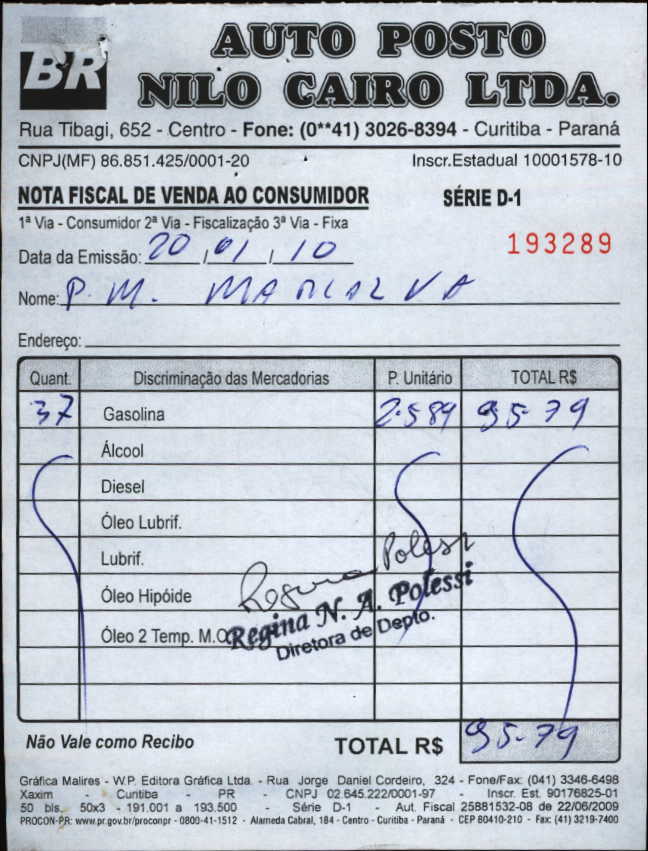 BR
AUTO POSTO
NILO CAIRO LTDA.
Rua Tibagi, 652 - Centro - Fone: (0**41) 3026-8394 - Curitiba - Paraná
CNPJ(MF) 86.851.425/0001-20 Inscr.Estadual 10001578-10
NOTA FISCAL DE VENDA AO CONSUMIDOR SÉRIE D-1
1ª Via - Consumidor 2ª Via - Fiscalização 3ª Via - Fixa
Data da Emissão: 20/01/10 193289
Nome: P. M.
Endereço:
Quant. Discriminação das Mercadorias P. Unitário TOTAL R$
37 Gasolina 2.589 95-79
Álcool
Diesel
Óleo Lubrif.
Lubrif.
Óleo Hipóide
Óleo 2 Temp. M.O
Regina Polessi
Regina N. A. Polessi
Diretora de Depto.
Não Vale como Recibo TOTAL R$ 95-79
Gráfica Malires - W.P. Editora Gráfica Ltda. - Rua Jorge Daniel Cordeiro, 324 - Fone/Fax: (041) 3346-6498
Xaxim - Curitiba - PR - CNPJ 02.645.222/0001-97 - Inscr. Est. 90176825-01
50 bls. 50x3 - 191.001 a 193.500 - Série D-1 - Aut. Fiscal 25881532-08 de 22/06/2009
PROCON-PR: www.pr.gov.br/proconpr - 0800-41-1512 - Alameda Cabral, 184 - Centro - Curitiba - Paraná - CEP 80410-210 - Fax: (41) 3219-7400